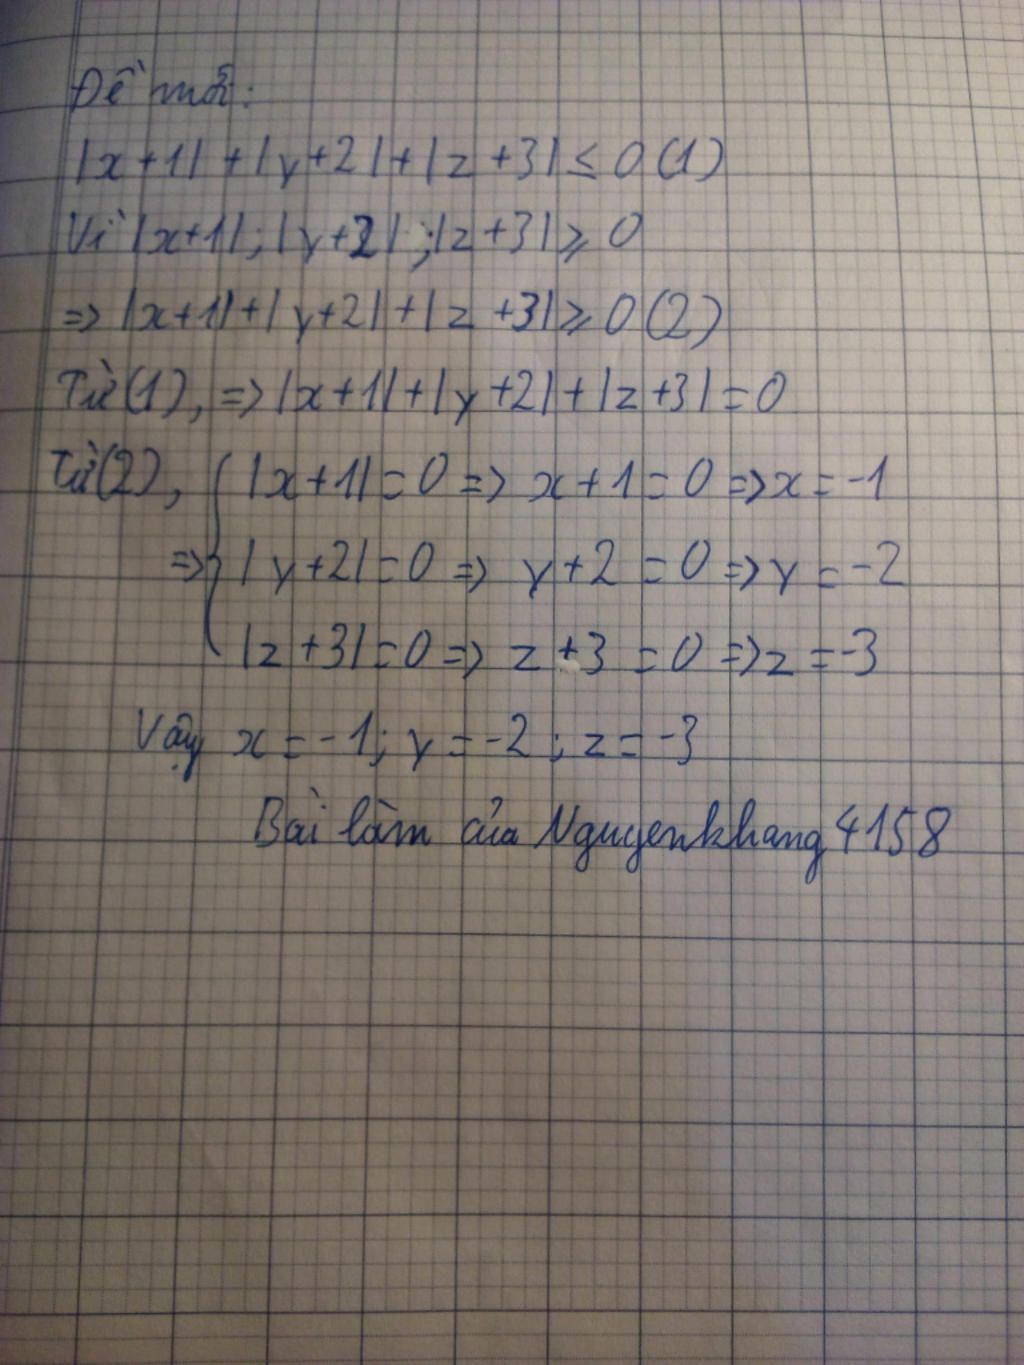 Đề mới:
|x+1|+|y+2|+|z+3|≤0(1)
Vì |x+1|;|y+2|;|z+3|≥0
=>|x+1|+|y+2|+|z+3|≥0(2)
Từ(1),=>|x+1|+|y+2|+|z+3|=0
Từ(2), { |x+1|=0=>x+1=0=>x=-1
=> |y+2|=0=>y+2=0=>y=-2
|z+3|=0=>z+3=0=>z=-3
Vậy x=-1;y=-2;z=-3
Bài làm của Nguyenkhang4158